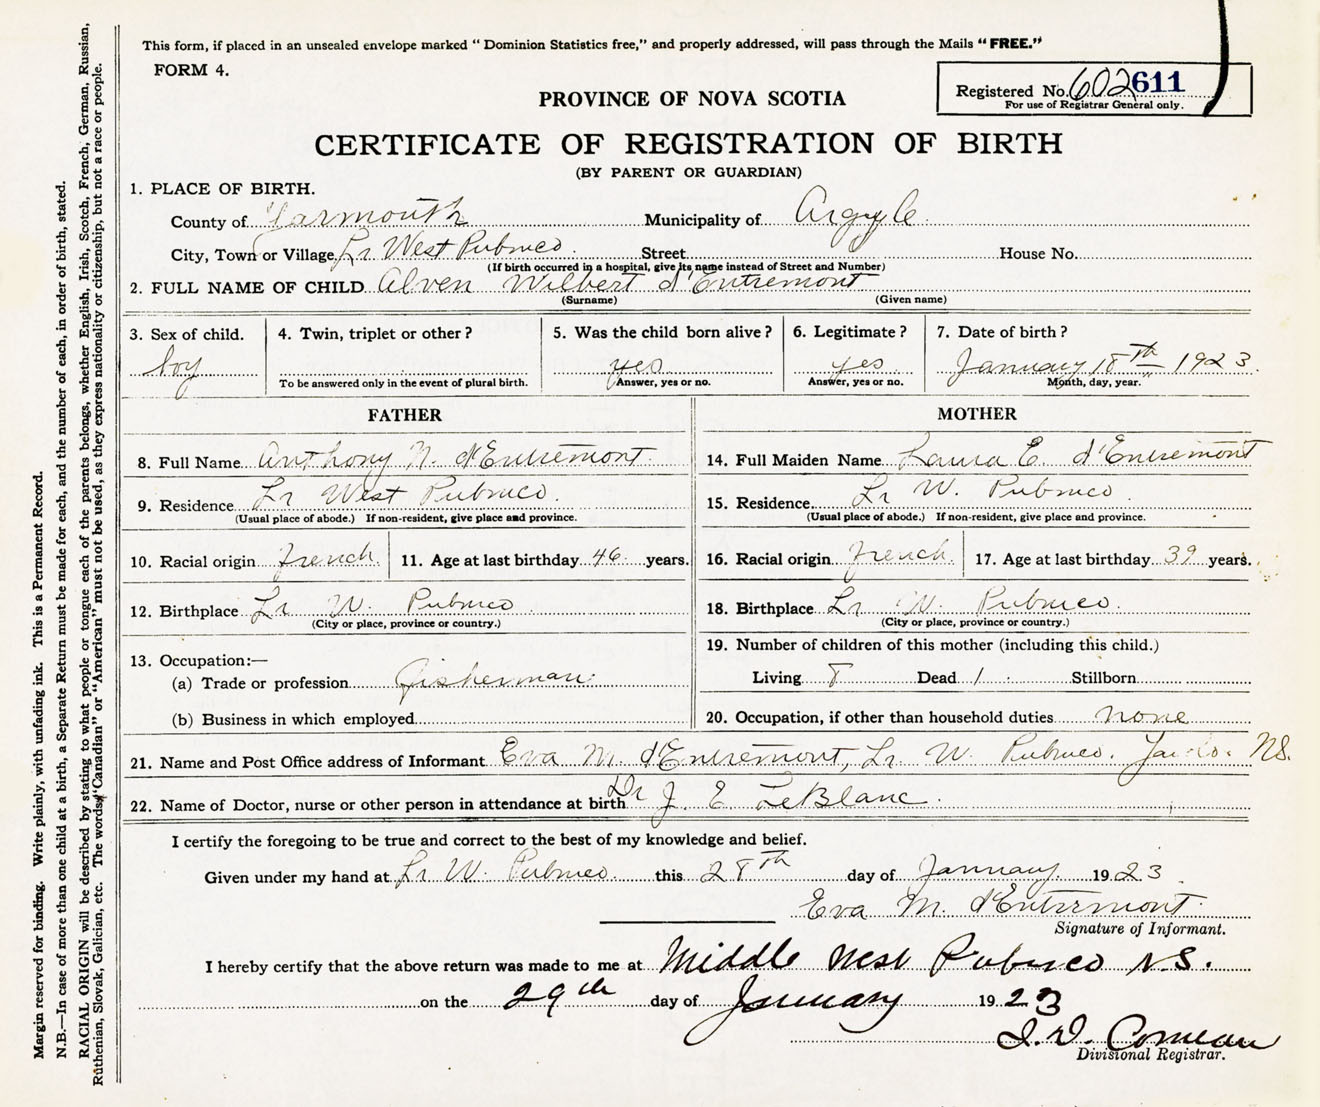 This form, if placed in an unsealed envelope marked “ Dominion Statistics free,” and properly addressed, will pass through the Mails “ FREE.”
FORM 4.
Registered No. 602611
For use of Registrar General only.
PROVINCE OF NOVA SCOTIA
CERTIFICATE OF REGISTRATION OF BIRTH
(BY PARENT OR GUARDIAN)
1. PLACE OF BIRTH.
County of Yarmouth Municipality of Argyle
City, Town or Village Lr West Pubnico Street House No.
(If birth occurred in a hospital, give its name instead of Street and Number)
2. FULL NAME OF CHILD Alven Wilbert d'Entremont
(Surname) (Given name)
3. Sex of child. 4. Twin, triplet or other ? 5. Was the child born alive ? 6. Legitimate ? 7. Date of birth ?
boy yes yes January 18th 1923.
To be answered only in the event of plural birth. Answer, yes or no. Answer, yes or no. Month, day, year.
FATHER MOTHER
8. Full Name Anthony N. d'Entremont 14. Full Maiden Name Laura E. d'Entremont
9. Residence Lr West Pubnico. 15. Residence Lr W. Pubnico.
(Usual place of abode.) If non-resident, give place and province. (Usual place of abode.) If non-resident, give place and province.
10. Racial origin French. 11. Age at last birthday 46 years. 16. Racial origin French. 17. Age at last birthday 39 years.
12. Birthplace Lr W. Pubnico 18. Birthplace Lr W. Pubnico.
(City or place, province or country.) (City or place, province or country.)
13. Occupation:— 19. Number of children of this mother (including this child.)
(a) Trade or profession Fisherman Living 8 Dead 1 Stillborn
(b) Business in which employed 20. Occupation, if other than household duties none
21. Name and Post Office address of Informant Eva M. d'Entremont, Lr W. Pubnico. Yar. Co. NS.
22. Name of Doctor, nurse or other person in attendance at birth Dr J. E LeBlanc.
I certify the foregoing to be true and correct to the best of my knowledge and belief.
Given under my hand at Lr W. Pubnico this 28th day of January 1923.
Eva M. d'Entremont
Signature of Informant.
I hereby certify that the above return was made to me at Middle West Pubnico N.S.
on the 29th day of January 1923
Comeau
Divisional Registrar.
Margin reserved for binding. Write plainly, with unfading ink. This is a Permanent Record.
N.B.—In case of more than one child at a birth, a Separate Return must be made for each, and the number of each, in order of birth, stated.
RACIAL ORIGIN will be described by stating to what people or tongue each of the parents belongs, whether English, Irish, Scotch, French, German, Russian,
Ruthenian, Slovak, Galician, etc. The words “Canadian” or “American” must not be used, as they express nationality or citizenship, but not a race or people.